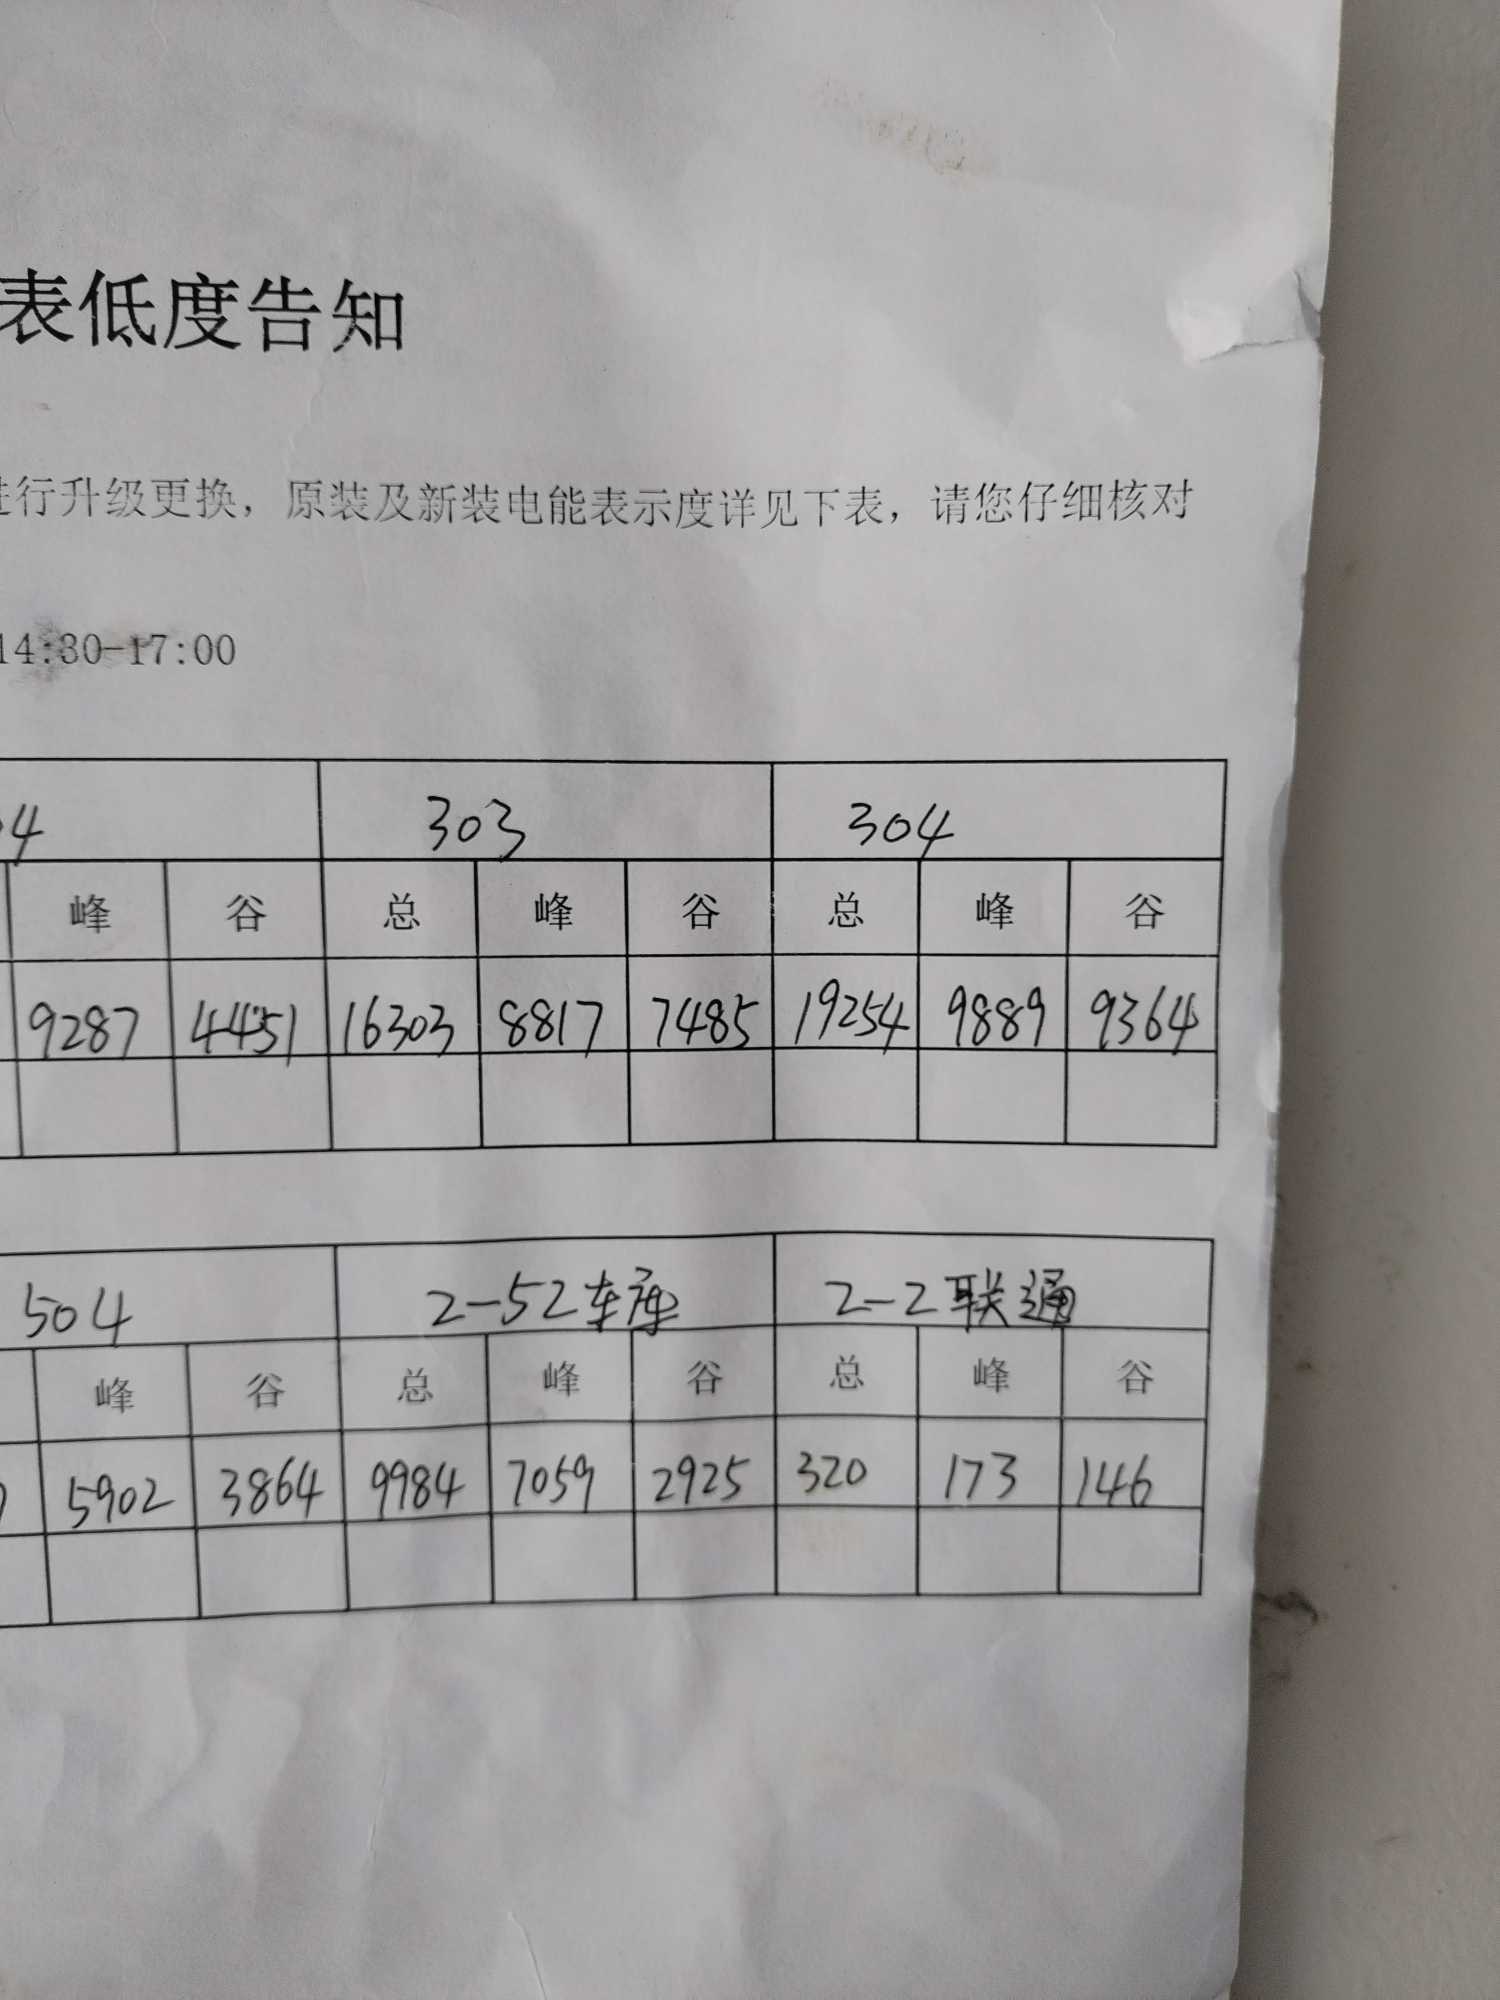 表低度告知
进行升级更换，原装及新装电能表示度详见下表，请您仔细核对
14:30-17:00
4 303 304
峰 谷 总 峰 谷 总 峰 谷
9287 4451 16303 8817 7485 19254 9889 9364
504 2-52车库 2-2联通
峰 谷 总 峰 谷 总 峰 谷
5902 3864 9984 7059 2925 320 173 146